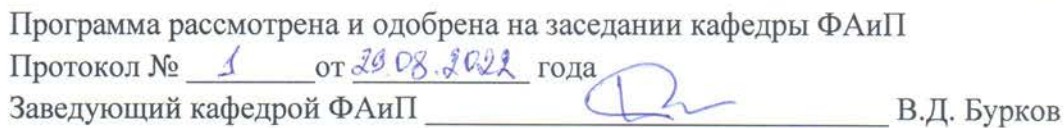 Программа рассмотрена и одобрена на заседании кафедры ФАиП
Протокол № 1 от 29.08.2022 года
Заведующий кафедрой ФАиП В.Д. Бурков